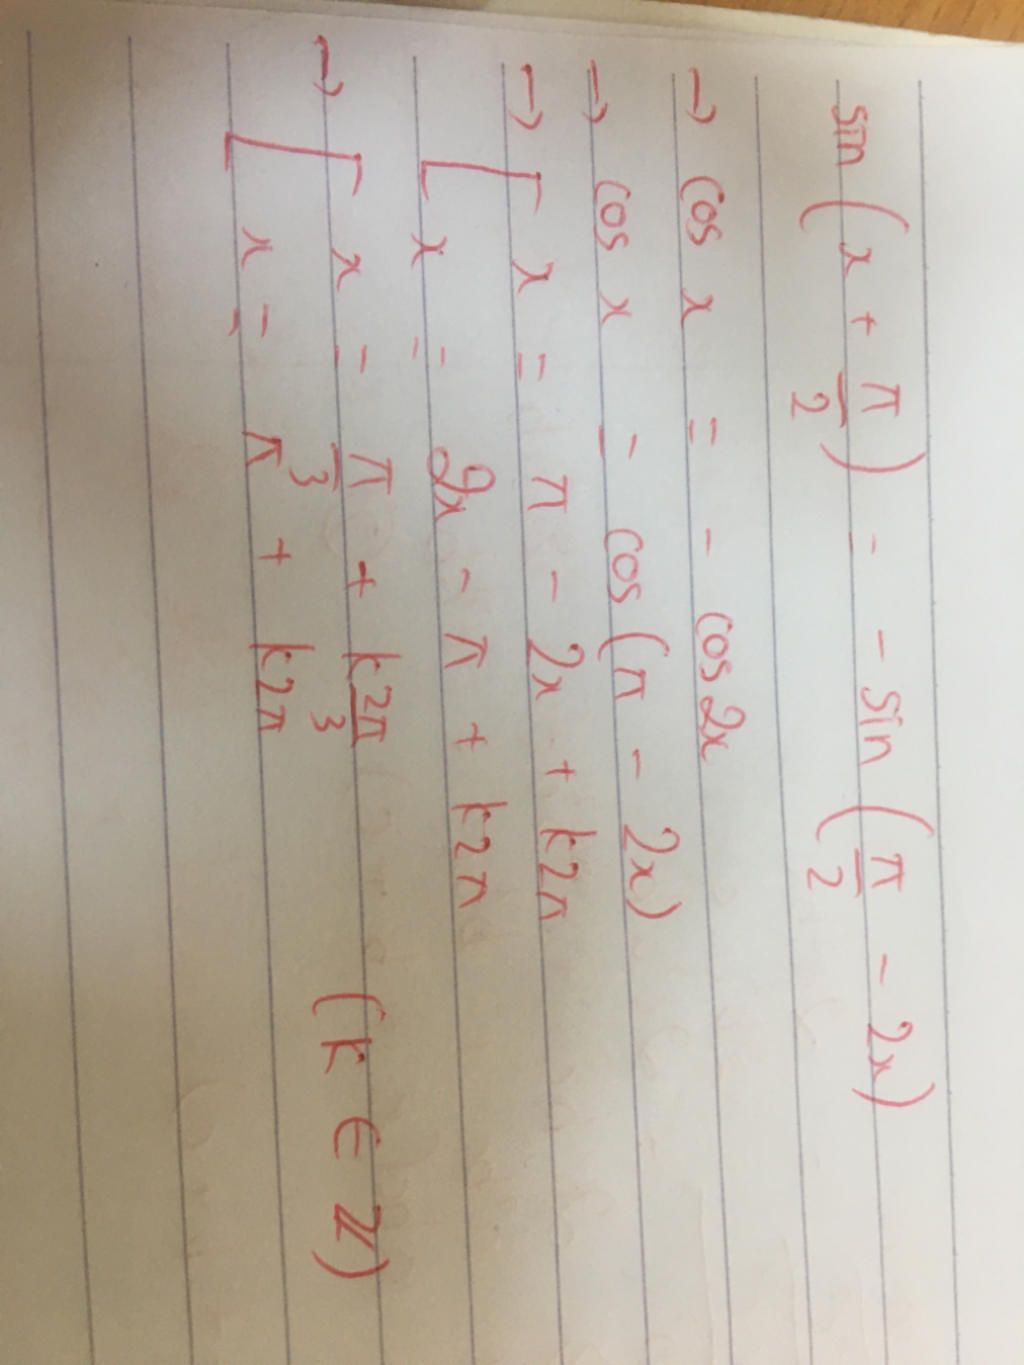 sin(x + π/2) = - sin(π/2 - 2x)
→ cos x = - cos 2x
→ cos x = cos(π - 2x)
→ [ x = π - 2x + k2π
x = 2x - π + k2π
→ [ x = π/3 + k2π/3 (k ∈ ℤ)
x = π + k2π